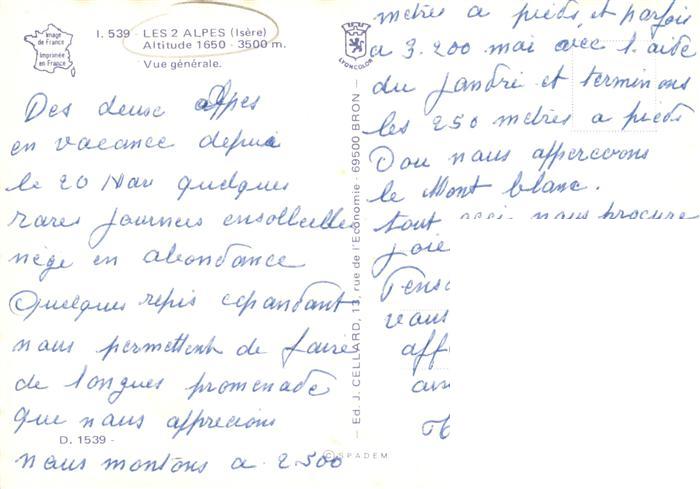 Image
de France
Imprimée
en France
I. 539 - LES 2 ALPES (Isère)
Altitude 1650 - 3500 m.
Vue générale.
LYONCOLOR
Des deux alpes
en vacance depui
le 20 Mar quelques
rares journeis ensolleilles
nège en abondance
Quelques repis cependant
nous permettent de faire
de longues promenade
que nous apprecions
D. 1539 -
nous montons a 2.500
Ed. J. CELLARD, 13, rue de l'Economie - 69500 BRON -
© SPADEM
metres a pieds, et parfois
a 3.200 mai avec l'aide
du Jandri et terminons
les 250 metres a pieds
Dou nous appercevons
le Mont blanc.
tout ceci nous procure
joie
Pens
vous
aff